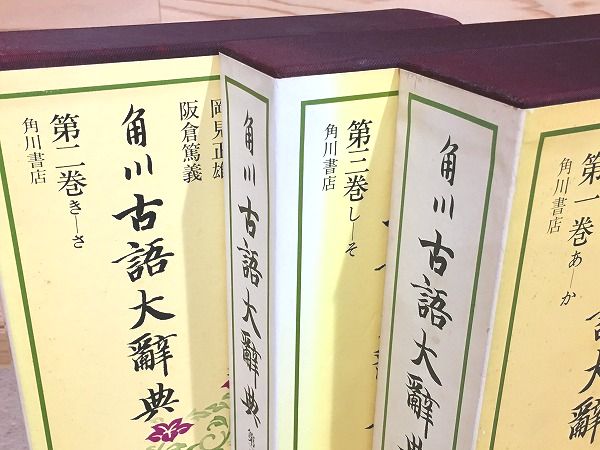 岡見正雄
阪倉篤義
角川古語大辭典
第二巻 き―さ
角川書店
角川古語大辭典
第
第三巻 し―そ
角川書店
角川古語大辭典
第一巻 あ―か
角川書店
語大辭